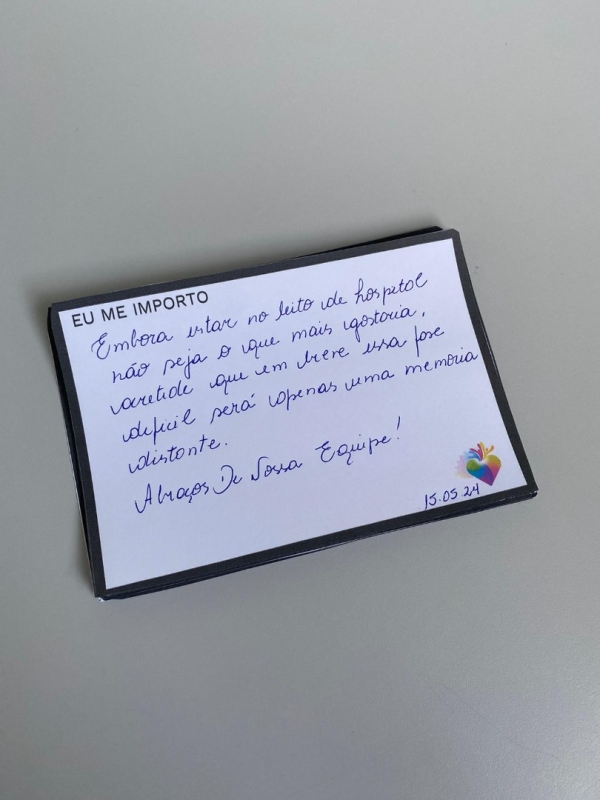 EU ME IMPORTO
Embora estar no leito de hospital
não seja o que mais gostaria,
acredide que em breve essa fase
dificil será apenas uma memoria
distante.
Abraços De Nossa Equipe!
15.05.24